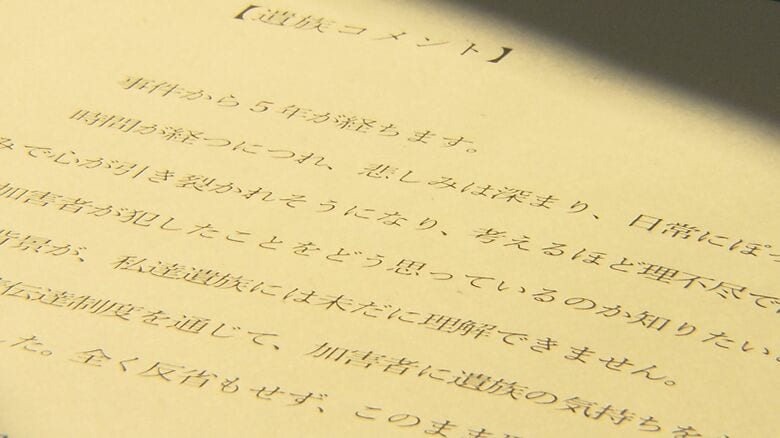 【遺族コメント】
事件から５年が経ちます。
時間が経つにつれ、悲しみは深まり、日常にぽっ
みで心が引き裂かれそうになり、考えるほど理不尽で
加害者が犯したことをどう思っているのか知りたい
背景が、私達遺族には未だに理解できません。
伝達制度を通じて、加害者に遺族の気持ちを
した。全く反省もせず、このまま